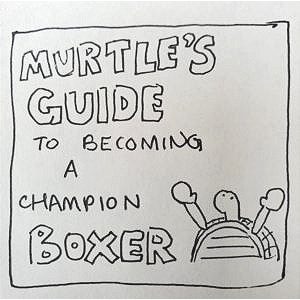 MURTLE'S
GUIDE
TO BECOMING
A
CHAMPION
BOXER